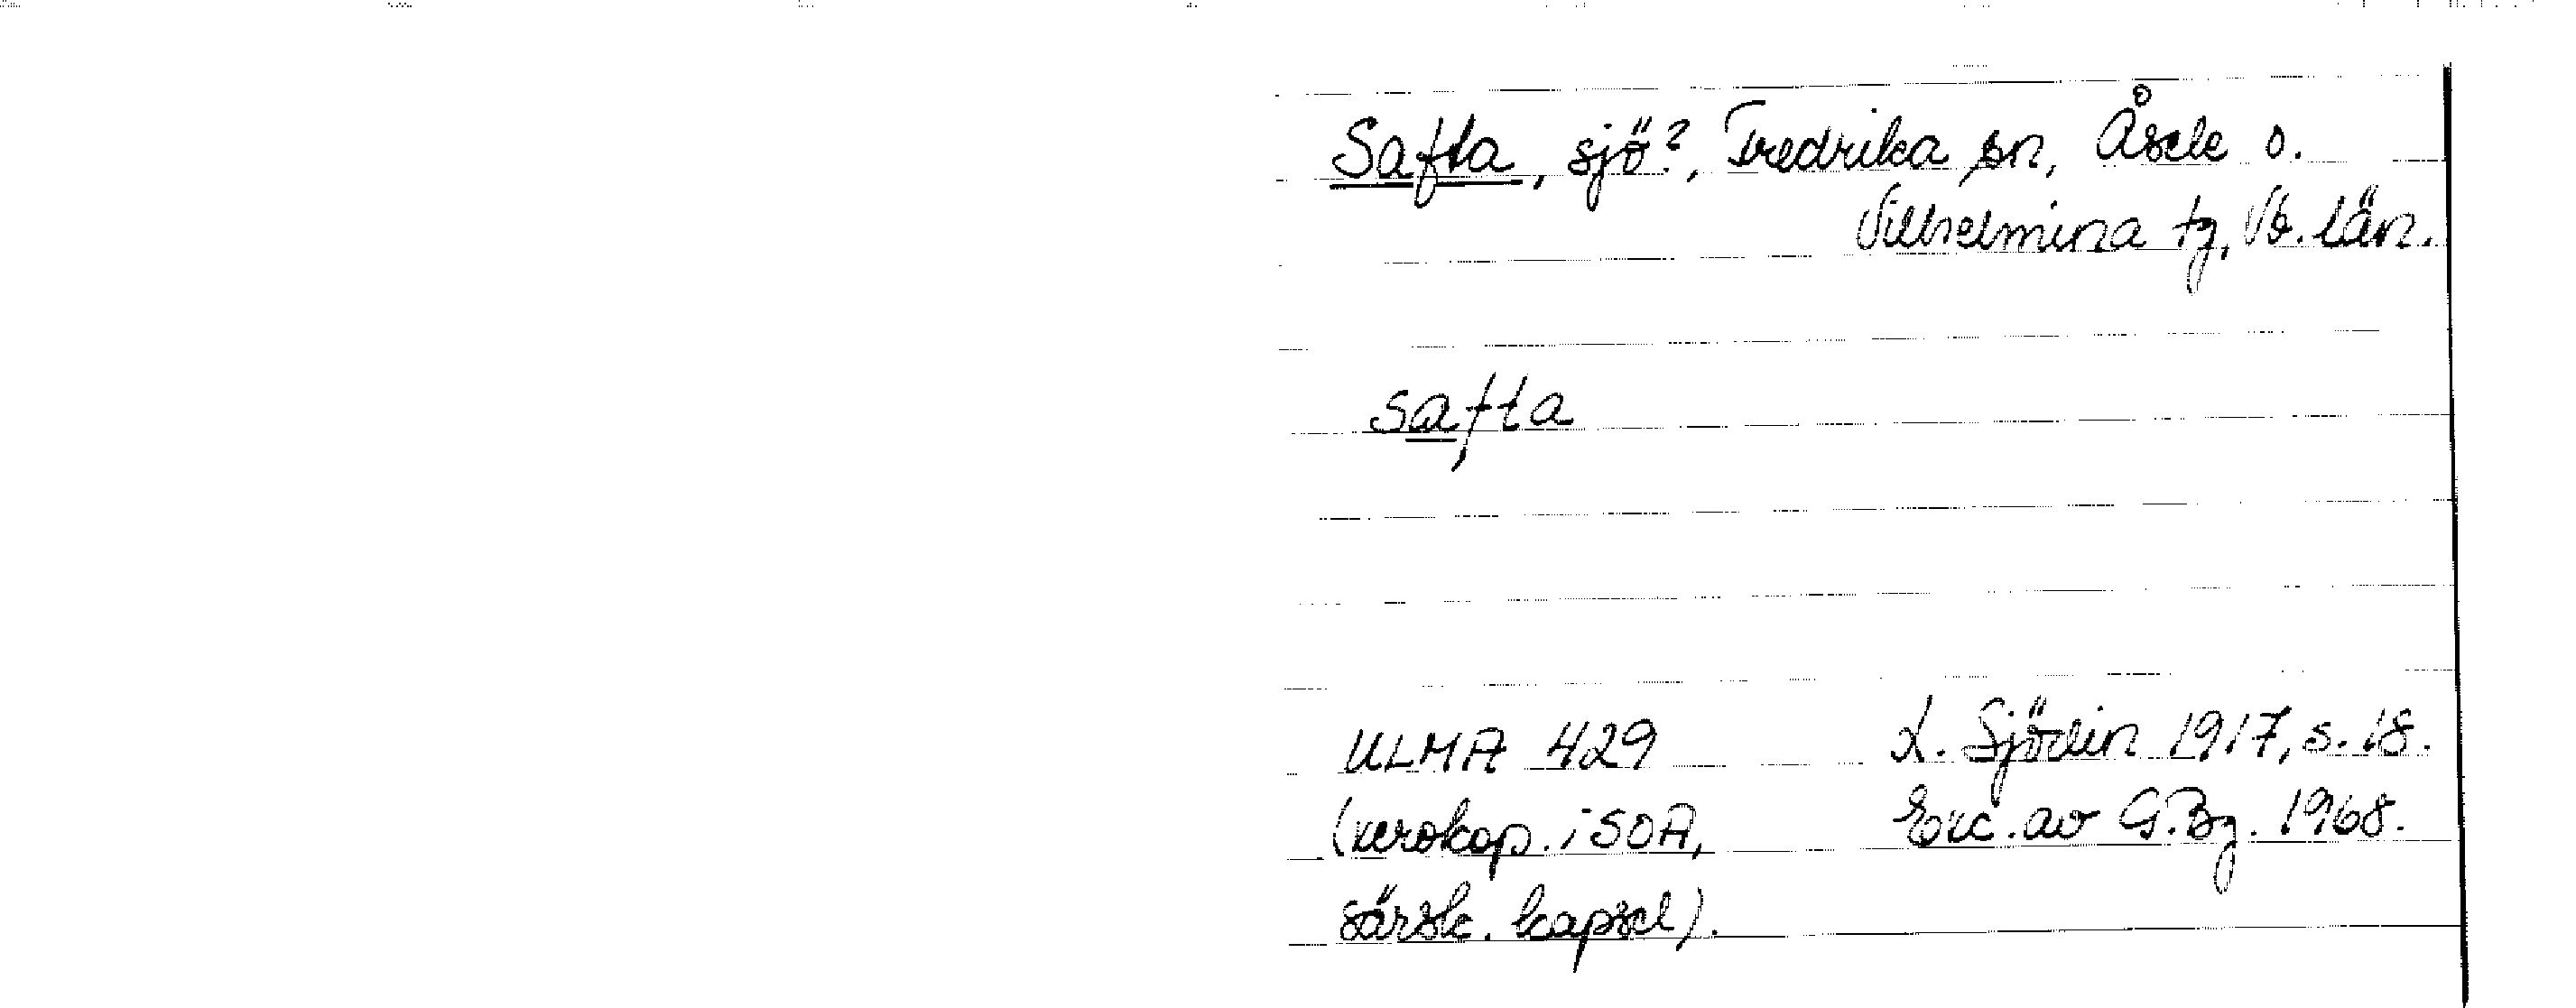 Safta, sjö?, Fredrika sn, Åsele o.
Vilhelmina tg, Vb. län.
safta
ULMA 429
(xerokop. i SOA,
särsk. kapsel).
L. Sjödin 1917, s. 18.
Exc. av G.Bg. 1968.